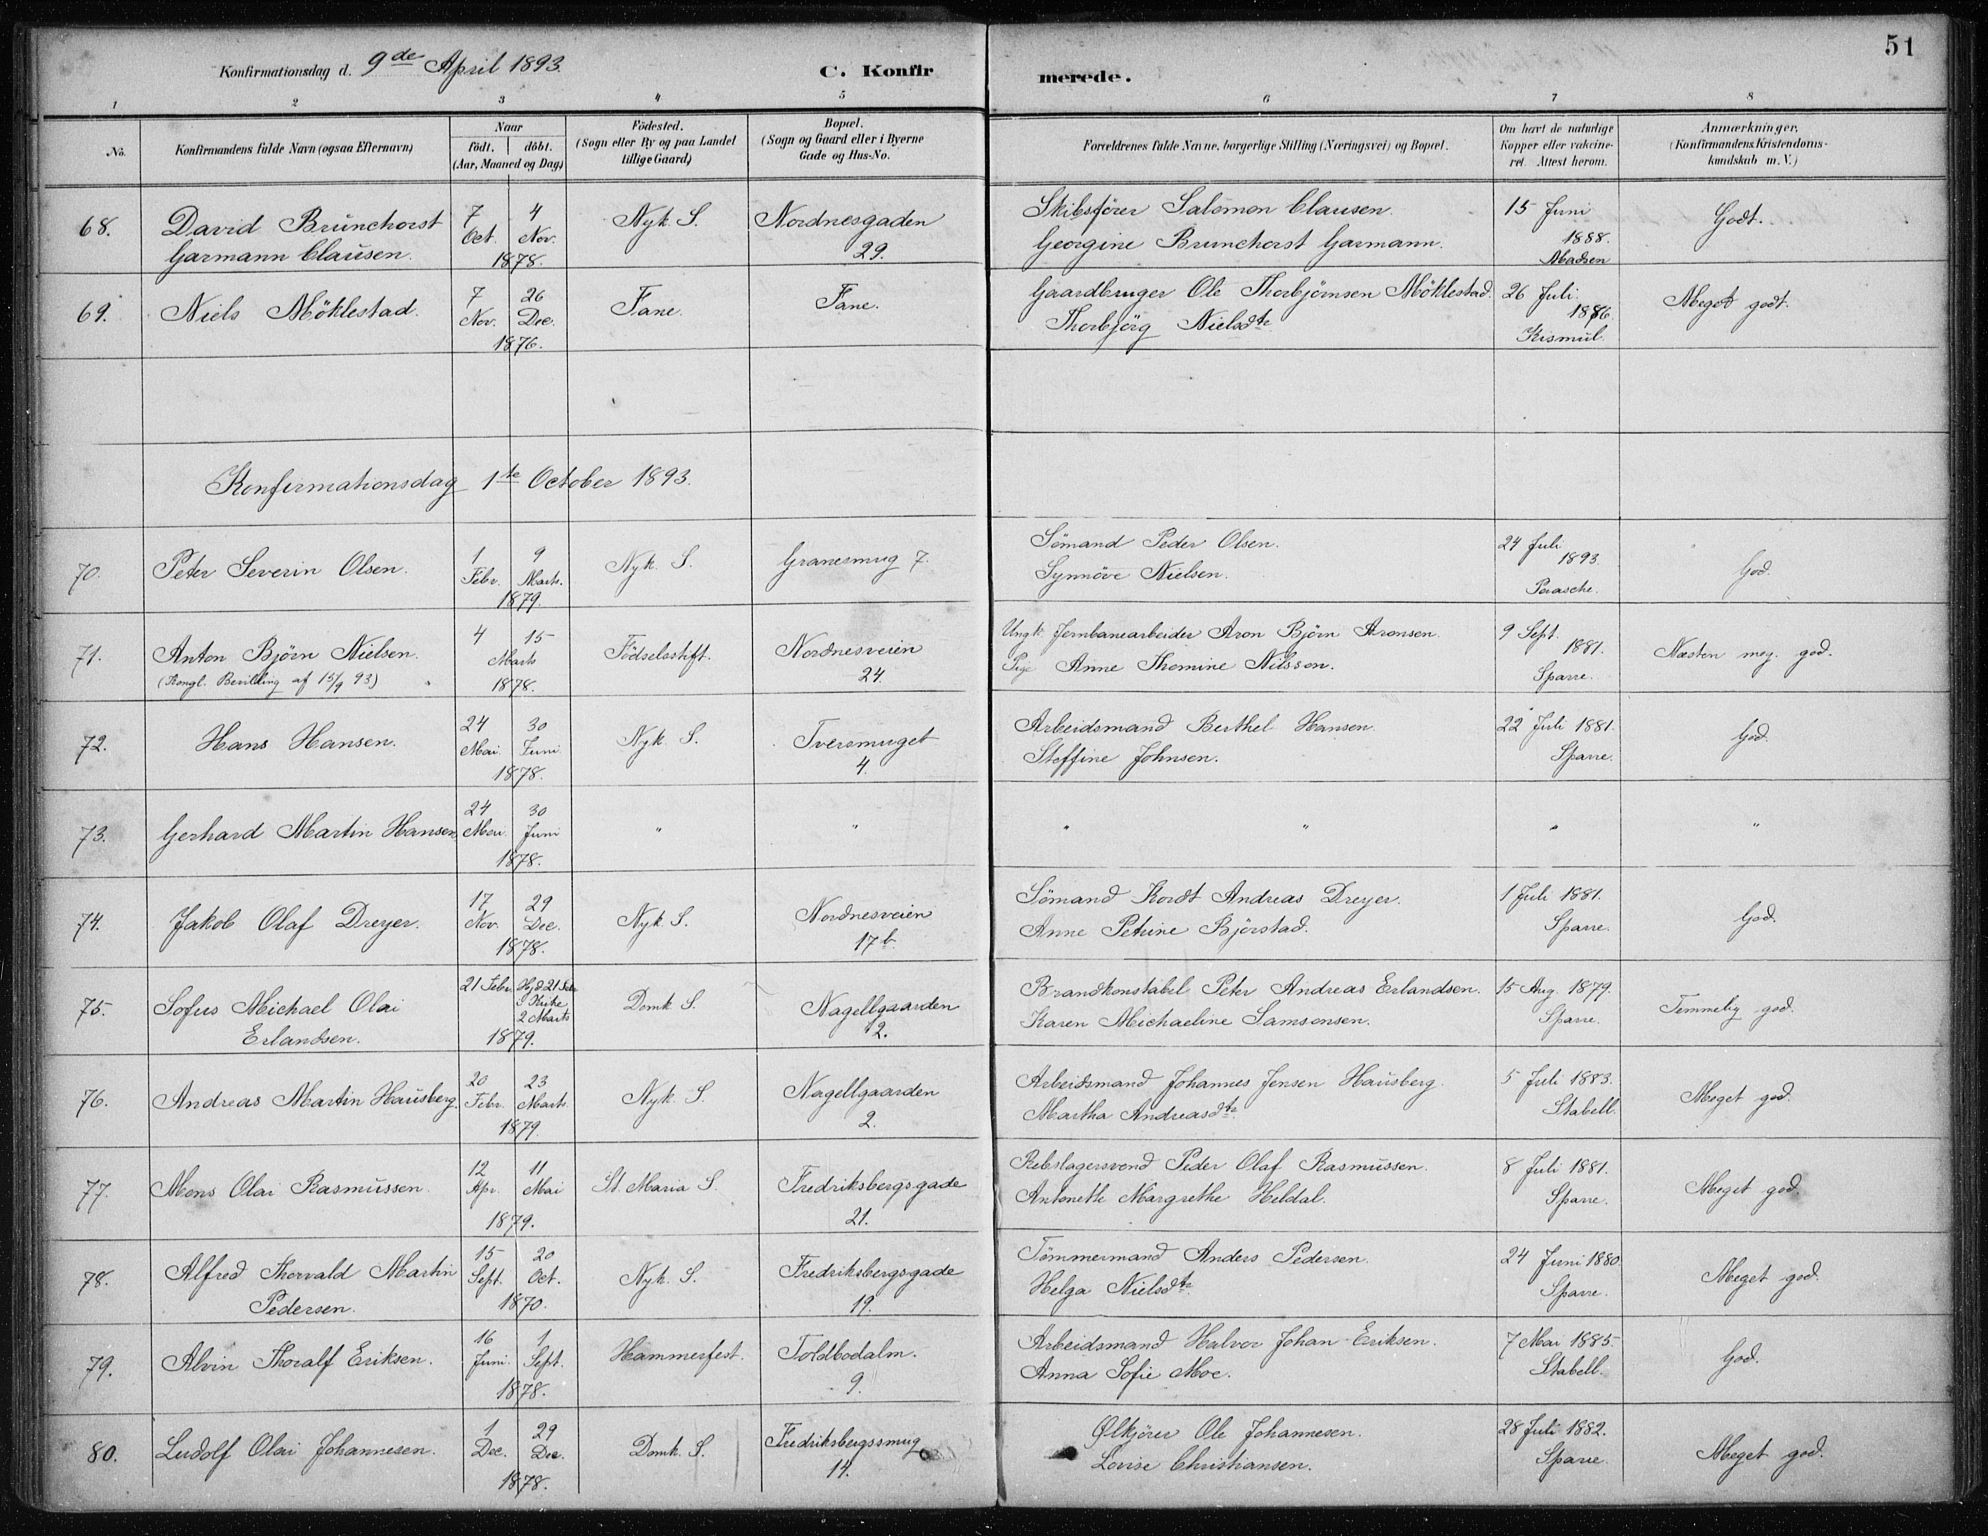 51
Konfirmationsdag d. 9de April 1893.
C. Konfirmerede.
1 2 3 4 5 6 7 8
No. Konfirmandens fulde Navn (ogsaa Efternavn) Naar födt. döbt. (Aar, Maaned og Dag) Födested. (Sogn eller By og paa Landet tillige Gaard) Bopæl. (Sogn og Gaard eller i Byerne Gade og Hus-No. Forældrenes fulde Navne, borgerlige Stilling (Næringsvei) og Bopæl. Om havt de naturlige Kopper eller vakcineret. Attest herom. Anmærkninger. (Konfirmandens Kristendomskundskab m. V.)
68. David Brunchorst 7 4 Nyk. S. Nordnesgaden Skibsfører Salomon Clausen. 15 Juni Godt.
Garmann Clausen. Oct. Nov. 29. Georgine Brunchorst Garmann. 1888.
1878. Madsen
69. Niels Möklestad. 7 26 Fane. Fane. Gaardbruger Ole Thorbjörnsen Möklestad. 26 Juli Meget godt.
Nov. Dec. Thorbjörg Nielsdtr 1886.
1876. Krismul.
Konfirmationsdag 1ste October 1893.
70. Peter Severin Olsen. 1 9 Nyk. S. Granesmug 7. Sömand Peder Olsen. 24 Juli God.
Febr. Marts. Synnöve Nielsen. 1893.
1879. Parasche.
71. Anton Björn Nielsen. 4 15 Födselsstift. Nordnesveien Ungk. Jernbanearbeider Aron Björn Aronsen. 9 Sept. Næsten meg. god.
(Kongl. Bevilling af 15/9 93) Marts 24. Pige Anne Thomine Nilsson. 1881.
1878. Sparre.
72. Hans Hansen. 24 30 Nyk. S. Tversmuget Arbeidsmand Berthel Hansen. 22 Juli 1881. God.
Mai. Juni. 4. Steffine Johnsen. Sparre.
1878.
73. Gerhard Martin Hansen 24 30 " " " " " "
Mai. Juni
1878.
74. Jakob Olaf Dreyer. 17 29 Nyk. S. Nordnesveien Sömand Kordt Andreas Dreyer. 1 Juli 1881. God.
Nov. Dec. 17 b. Anne Petrine Björstad. Sparre.
1878.
75. Sofus Michael Olai 21 Febr. Hjd. 21 Febr Domk. S. Nagellgaarden Brandkonstabel Peter Andreas Erlandsen. 15 Aug. 1879. Temmelig god.
Erlandsen. Kirke 2 Marts 12. Karen Michaeline Samsonsen. Sparre.
1879.
76. Andreas Martin Hausberg. 20 23 Nyk. S. Nagellgaarden Arbeidsmand Johannes Jensen Hausberg. 5 Juli 1883. Meget god.
Febr. Marts. 2. Martha Andreasdtr Stabell.
1879.
77. Mons Olai Rasmussen. 12 11 St. Maria S. Fredriksbergsgade Rebslagersvend Peder Olaf Rasmussen. 8 Juli 1881. Meget god.
Apr. Mai 21. Antonette Margrethe Heldal. Sparre.
1879.
78. Alfred Thorvald Martin 15 20 Nyk. S. Fredriksbergsgade Tömmermand Anders Pedersen. 24 Juni 1880. Meget god.
Pedersen. Sept. Oct. 19. Helga Nielsdtr. Sparre.
1870.
79. Alvin Thoralf Eriksen. 16 1 Hammerfest. Toldbodalm. Arbeidsmand Halvor Johan Eriksen. 7 Mai 1885. God.
Juni. Sept. 9. Anna Sofie Moe. Stabell.
1878.
80. Ludolf Olai Johannesen. 1 29 Domk. S. Fredriksbergssmug Ølkjörer Ole Johannesen. 28 Juli 1882. Meget god.
Dec. Dec. 14. Lovise Christiansen. Sparre.
1878.